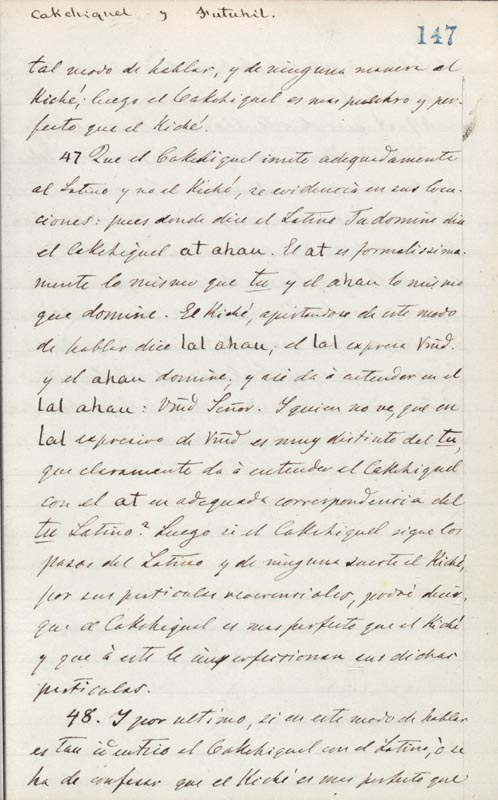 Cakchiquel y Sutuhil.
147
tal modo de hablar, y de ninguna manera el
Kiché; luego el Cakchiquel es mas pulchro y per-
fecto que el Kiché.
47 Que el Cakchiquel imite adequadamente
al Latino y no el Kiché, se evidencia en sus locu-
ciones: pues donde dice el Latino Tu domine dice
el Cakchiquel at ahau. El at es formalissima-
mente lo mismo que tu y el ahau lo mismo
que domine. El Kiché, apartandose de este modo
de hablar dice lal ahau; el lal expresa Vmd.
y el ahau domine; y asi da à entender en el
lal ahau: Vmd Señor. Y quien no ve, que en
lal expresivo de Vmd es muy distinto del tu,
que claramente da à entender el Cakchiquel
con el at en adequada correspondencia del
tu Latino? Luego si el Cakchiquel sigue los
pasos del Latino y de ninguna suerte el Kiché,
por sus particulas reverenciales, podré decir,
que el Cakchiquel es mas perfecto que el Kiché
y que à este le imperfeccionan sus dichas
particulas.
48. Y por ultimo, si en este modo de hablar
es tan identico el Cakchiquel con el Latino, ò se
ha de confesar que el Kiché es mas perfecto que